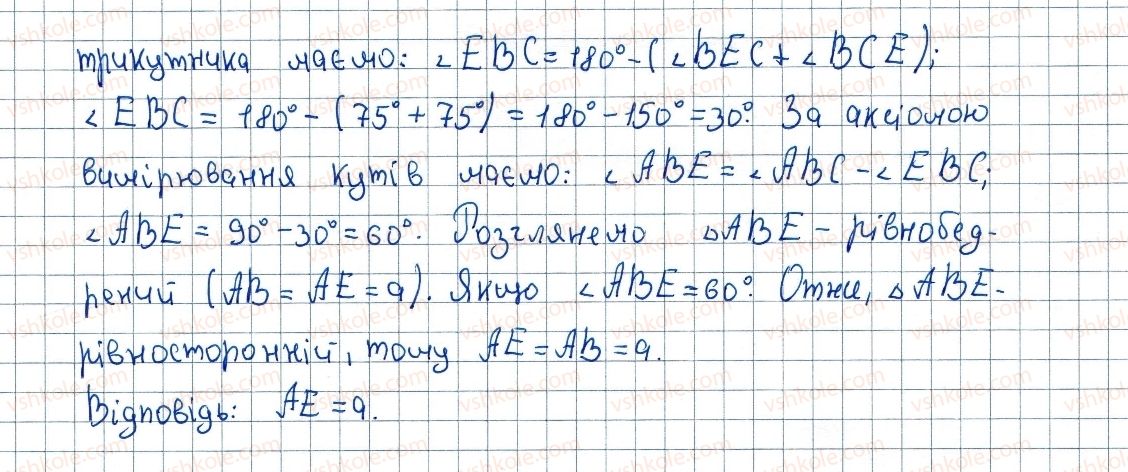 трикутника маємо: ∠EBC = 180° - (∠BEC + ∠BCE);
∠EBC = 180° - (75° + 75°) = 180° - 150° = 30°. За аксіомою
вимірювання кутів маємо: ∠ABE = ∠ABC - ∠EBC;
∠ABE = 90° - 30° = 60°. Розглянемо △ABE - рівнобед-
рений (AB = AE = a). Якщо ∠ABE = 60°. Отже, △ABE -
рівносторонній, тому AE = AB = a.
Відповідь: AE = a.